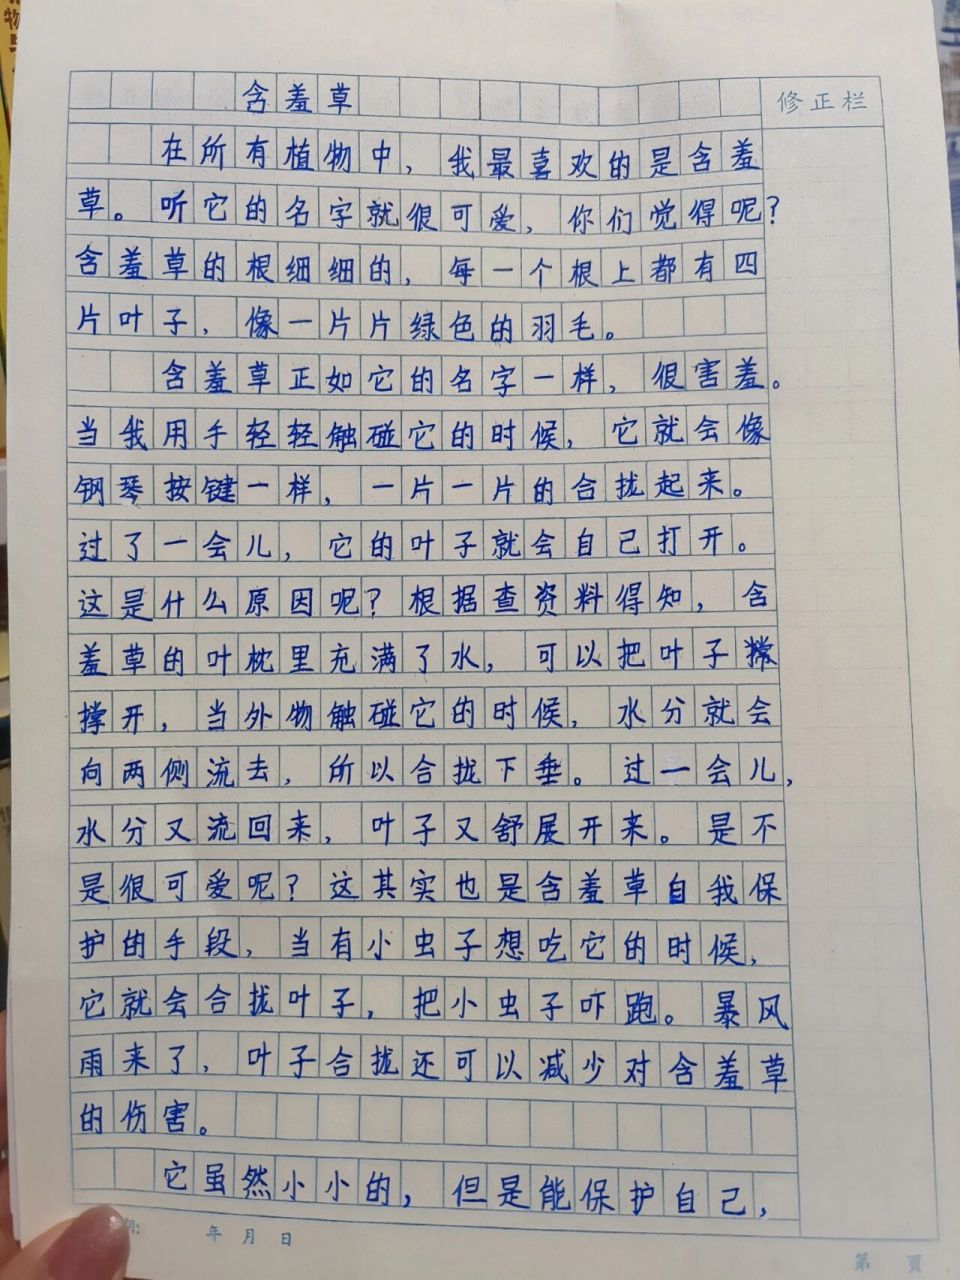 含羞草
修正栏
在所有植物中，我最喜欢的是含羞
草。听它的名字就很可爱，你们觉得呢？
含羞草的根细细的，每一个根上都有四
片叶子，像一片片绿色的羽毛。
含羞草正如它的名字一样，很害羞。
当我用手轻轻触碰它的时候，它就会像
钢琴按键一样，一片一片的合拢起来。
过了一会儿，它的叶子就会自己打开。
这是什么原因呢？根据查资料得知，含
羞草的叶枕里充满了水，可以把叶子
撑开，当外物触碰它的时候，水分就会
向两侧流去，所以合拢下垂。过一会儿，
水分又流回来，叶子又舒展开来。是不
是很可爱呢？这其实也是含羞草自我保
护的手段，当有小虫子想吃它的时候，
它就会合拢叶子，把小虫子吓跑。暴风
雨来了，叶子合拢还可以减少对含羞草
的伤害。
它虽然小小的，但是能保护自己，
年 月 日
第 頁